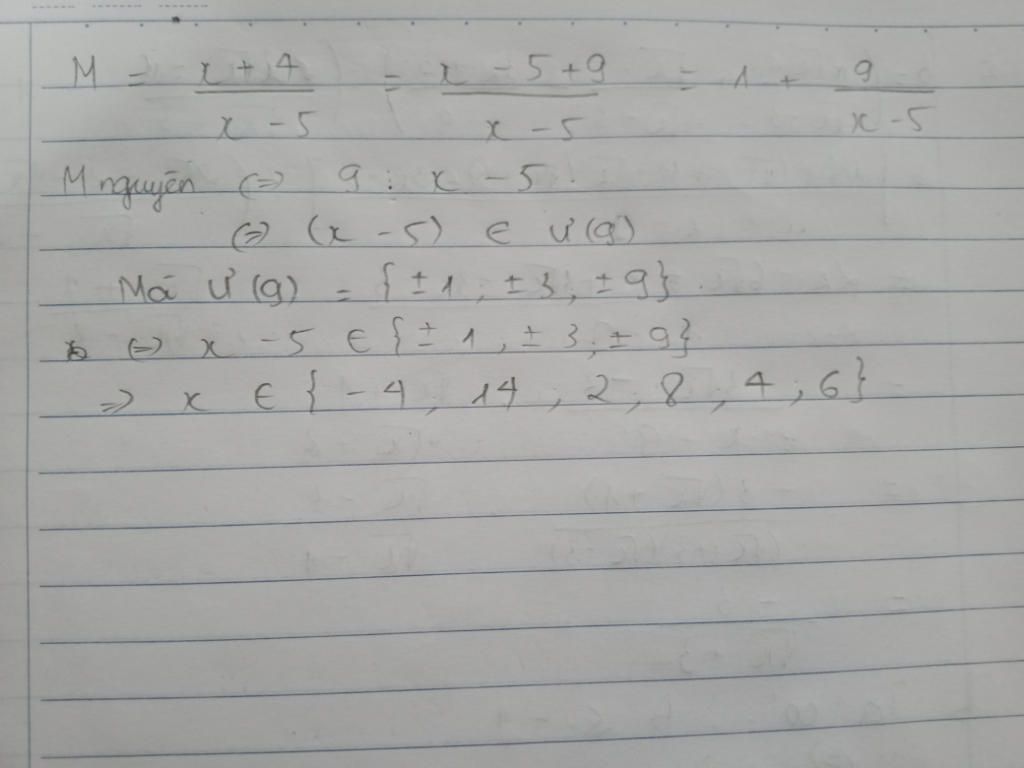 M = x + 4 / x - 5 = x - 5 + 9 / x - 5 = 1 + 9 / x - 5
M nguyên <=> 9 ⋮ x - 5
<=> (x - 5) ∈ Ư(9)
Mà Ư(9) = {±1; ±3; ±9}.
<=> x - 5 ∈ {±1; ±3; ±9}
=> x ∈ {-4; 14; 2; 8; 4; 6}